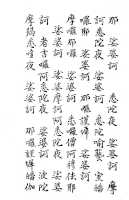 那 娑婆訶 悉陀夜 娑婆訶 摩
訶悉陀夜 娑婆訶 悉陀喻藝 室皤
囉耶 娑婆訶 那囉謹墀 娑婆訶
摩囉那囉 娑婆訶 悉囉僧阿穆佉耶
娑婆訶 娑婆摩訶阿悉陀夜 娑婆
訶 者吉囉阿悉陀夜 娑婆訶 波陀
摩羯悉陀夜 娑婆訶 那囉謹墀皤伽